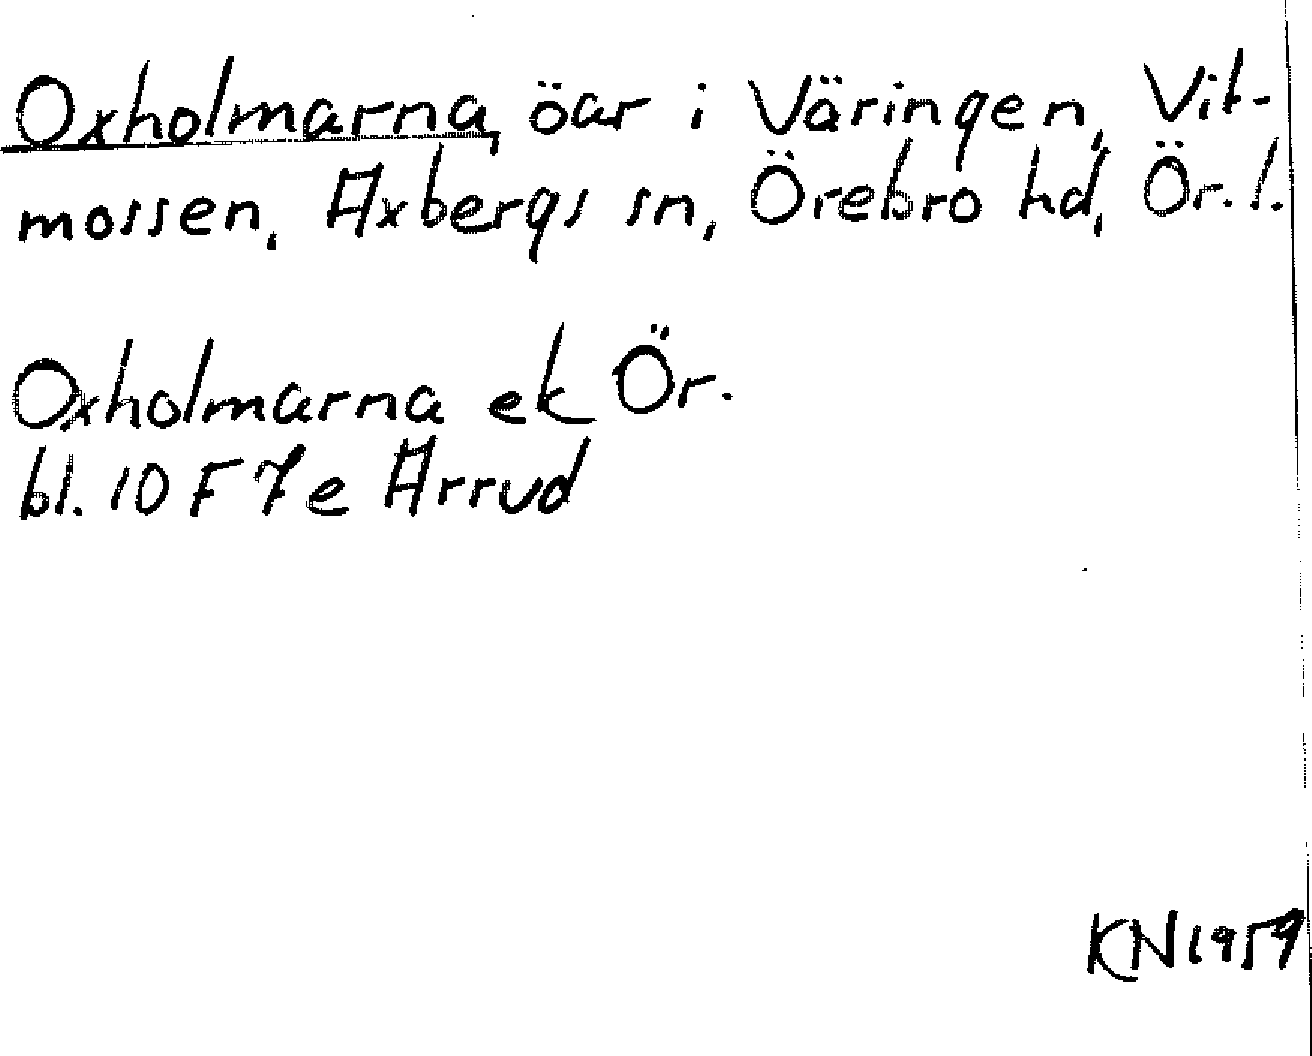 Oxholmarna, öar i Väringen, Vit-
mossen, Axbergs sn, Örebro hd, Ör. l.
Oxholmarna ek Ör.
bl. 10 F 7e Arrud
KN 1959